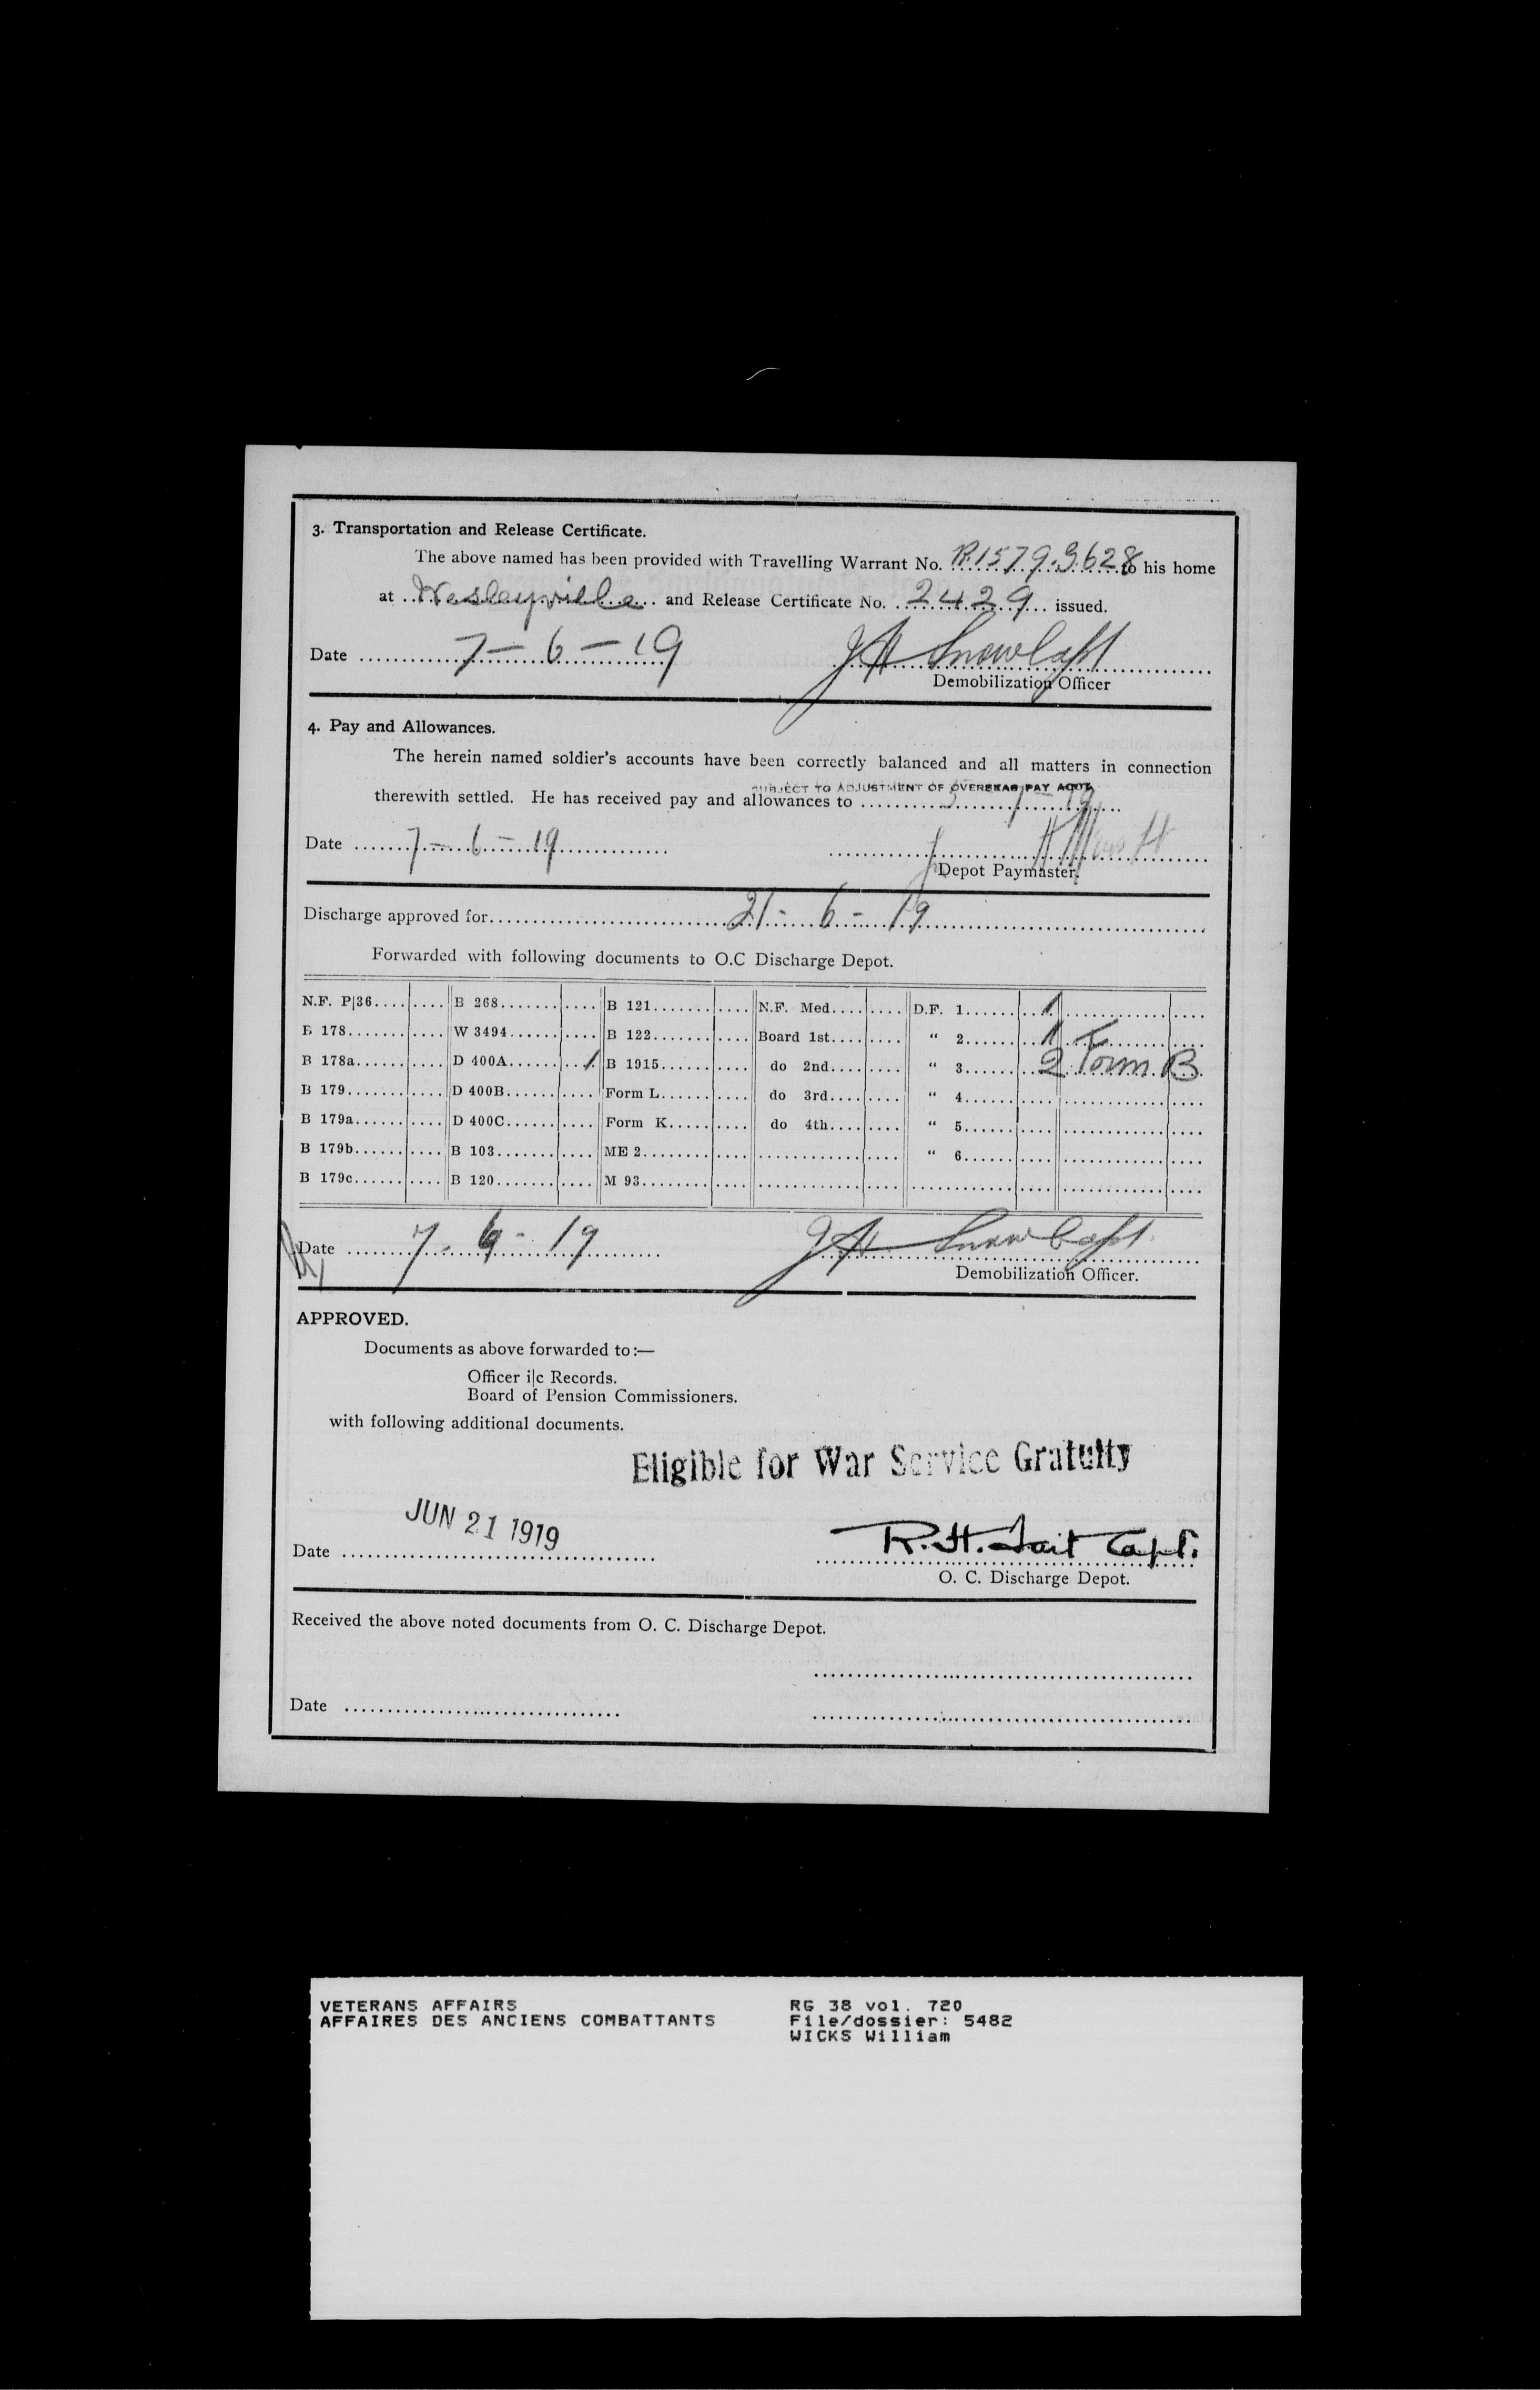 3. Transportation and Release Certificate.
The above named has been provided with Travelling Warrant No. R.1579.3628 to his home
at Wesleyville and Release Certificate No. 2429 issued.
Date 7-6-19 JH Snow Capt
Demobilization Officer
4. Pay and Allowances.
The herein named soldier's accounts have been correctly balanced and all matters in connection
SUBJECT TO ADJUSTMENT OF OVERSEAS PAY ACCT.
therewith settled. He has received pay and allowances to
Date 7-6-19
Depot Paymaster.
Discharge approved for 21-6-19
Forwarded with following documents to O.C Discharge Depot.
N.F. P|36 B 268 B 121 N.F. Med D.F. 1 1
B 178 W 3494 B 122 Board 1st " 2 1
B 178a D 400A 1 B 1915 do 2nd " 3 2 Form B
B 179 D 400B Form L do 3rd " 4
B 179a D 400C Form K do 4th " 5
B 179b B 103 ME 2 " 6
B 179c B 120 M 93
Date 7-6-19 JH Snow Capt.
Demobilization Officer.
APPROVED.
Documents as above forwarded to:—
Officer i|c Records.
Board of Pension Commissioners.
with following additional documents.
Eligible for War Service Gratuity
JUN 21 1919
Date R.H. Tait Capt.
O. C. Discharge Depot.
Received the above noted documents from O. C. Discharge Depot.
Date
VETERANS AFFAIRS RG 38 vol. 720
AFFAIRES DES ANCIENS COMBATTANTS File/dossier: 5482
WICKS William